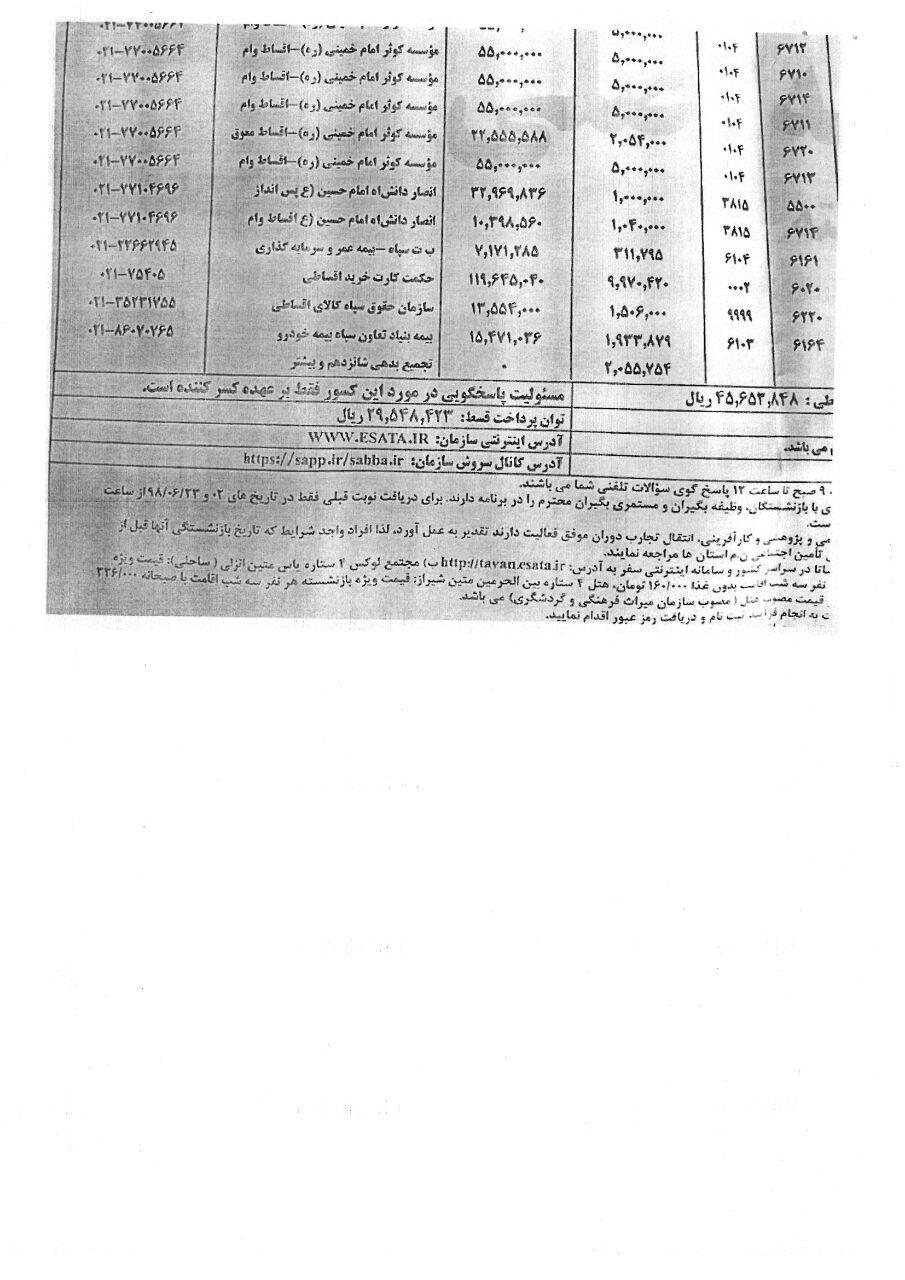 ۵,۰۰۰,۰۰۰
۶۷۱۲ ۰۱۰۴ ۵,۰۰۰,۰۰۰ ۵۵,۰۰۰,۰۰۰ مؤسسه کوثر امام خمینی (ره)-اقساط وام ۰۲۱-۷۷۰۰۵۶۶۴
۶۷۱۰ ۰۱۰۴ ۵,۰۰۰,۰۰۰ ۵۵,۰۰۰,۰۰۰ مؤسسه کوثر امام خمینی (ره)-اقساط وام ۰۲۱-۷۷۰۰۵۶۶۴
۶۷۱۴ ۰۱۰۴ ۵,۰۰۰,۰۰۰ ۵۵,۰۰۰,۰۰۰ مؤسسه کوثر امام خمینی (ره)-اقساط وام ۰۲۱-۷۷۰۰۵۶۶۴
۶۷۱۱ ۰۱۰۴ ۲,۰۵۴,۰۰۰ ۲۲,۵۵۵,۵۸۸ مؤسسه کوثر امام خمینی (ره)-اقساط معوق ۰۲۱-۷۷۰۰۵۶۶۴
۶۷۲۰ ۰۱۰۴ ۵,۰۰۰,۰۰۰ ۵۵,۰۰۰,۰۰۰ مؤسسه کوثر امام خمینی (ره)-اقساط وام ۰۲۱-۷۷۰۰۵۶۶۴
۶۷۱۳ ۰۱۰۴ ۱,۰۰۰,۰۰۰ ۳۲,۹۶۹,۸۳۶ انصار دانش‌اه امام حسین (ع پس انداز ۰۲۱-۷۷۱۰۴۶۹۶
۵۵۰۰ ۳۸۱۵ ۱,۰۴۰,۰۰۰ ۱۰,۳۹۸,۵۶۰ انصار دانش‌اه امام حسین (ع اقساط وام ۰۲۱-۷۷۱۰۴۶۹۶
۶۷۱۴ ۳۸۱۵ ۳۱۱,۷۹۵ ۷,۱۷۱,۲۸۵ ب ت سپاه -بیمه عمر و سرمایه گذاری ۰۲۱-۲۲۶۶۲۹۴۵
۶۱۶۱ ۶۱۰۴ ۹,۹۷۰,۴۲۰ ۱۱۹,۶۴۵,۰۴۰ حکمت کارت خرید اقساطی ۰۲۱-۷۵۴۰۵
۶۰۲۰ ۰۰۰۲ ۱,۵۰۶,۰۰۰ ۱۳,۵۵۴,۰۰۰ سازمان حقوق سپاه کالای اقساطی ۰۲۱-۳۵۲۳۱۷۵۵
۶۲۲۰ ۹۹۹۹ ۱,۹۳۳,۸۷۹ ۱۵,۴۷۱,۰۳۶ بیمه بنیاد تعاون سپاه بیمه خودرو ۰۲۱-۸۶۰۷۰۷۶۵
۶۱۶۴ ۶۱۰۳ ۲,۰۵۵,۷۵۴ ۰ تجمیع بدهی شانزدهم و بیشتر
طی : ۴۵,۶۵۳,۸۴۸ ریال مسئولیت پاسخگویی در مورد این کسور فقط بر عهده کسر کننده است.
توان پرداخت قسط: ۲۹,۵۴۸,۴۲۳ ریال
می باشد. آدرس اینترنتی سازمان: WWW.ESATA.IR
آدرس کانال سروش سازمان: https://sapp.ir/sabba.ir
۹ صبح تا ساعت ۱۲ پاسخ گوی سؤالات تلفنی شما می باشند.
ی با بازنشستگان، وظیفه بگیران و مستمری بگیران محترم را در برنامه دارند. برای دریافت نوبت قبلی فقط در تاریخ های ۰۲ و ۹۸/۰۶/۲۳ از ساعت
ست.
می و پژوهشی و کارآفرینی، انتقال تجارب دوران موفق فعالیت دارند تقدیر به عمل آورد، لذا افراد واجد شرایط که تاریخ بازنشستگی آنها قبل از
تأمین اجتماعی ن.م استان ها مراجعه نمایند.
ساتا در سراسر کشور و سامانه اینترنتی سفر به آدرس: http://tavan.esata.ir ب) مجتمع لوکس ۴ ستاره یاس متین انزلی (ساحلی): قیمت ویژه
نفر سه شب اقامت بدون غذا ۱۶۰/۰۰۰ تومان، هتل ۴ ستاره بین الحرمین متین شیراز: قیمت ویژه بازنشسته هر نفر سه شب اقامت با صبحانه ۲۲۶/۰۰۰
قیمت مصوب هتل (مصوب سازمان میراث فرهنگی و گردشگری) می باشد.
ت به انجام فرآیند ثبت نام و دریافت رمز عبور اقدام نمایید.